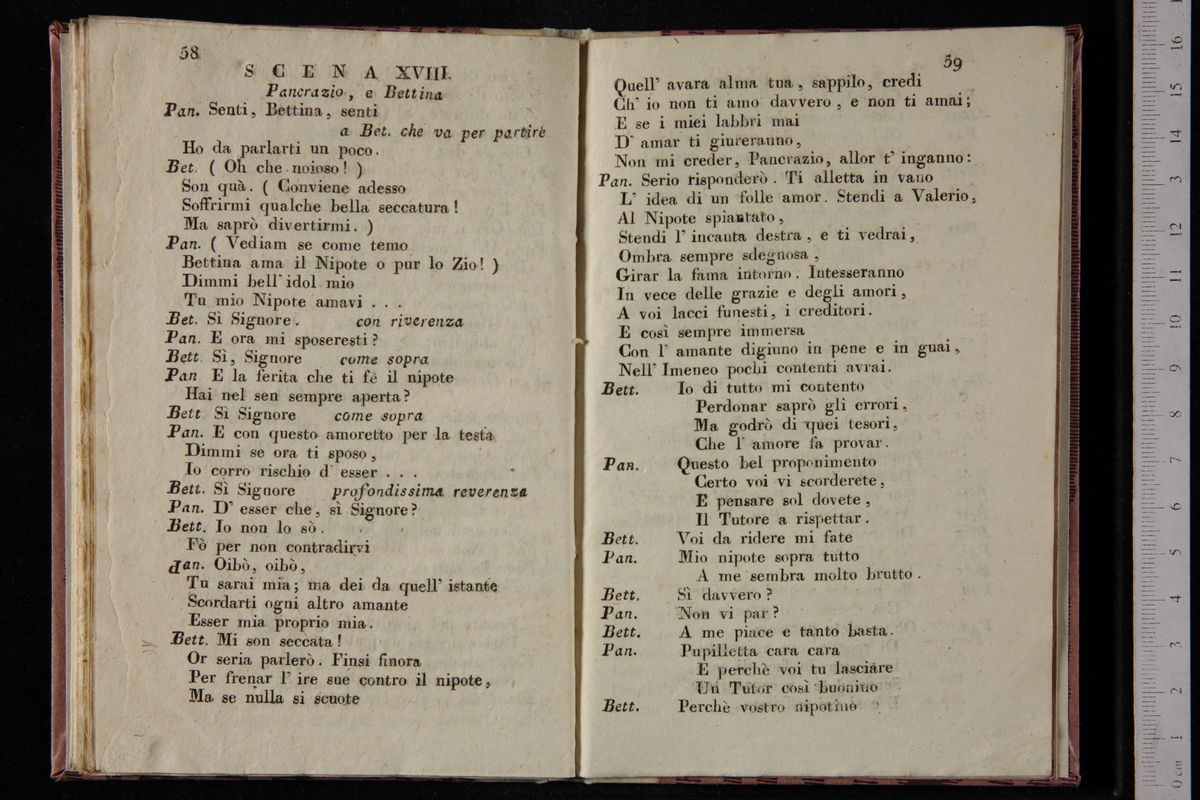 58
SCENA XVIII.
Pancrazio, e Bettina
Pan. Senti, Bettina, senti
a Bet. che va per partire
Ho da parlarti un poco.
Bet. ( Oh che noioso! )
Son quà. ( Conviene adesso
Soffrirmi qualche bella seccatura!
Ma saprò divertirmi. )
Pan. ( Vediam se come temo
Bettina ama il Nipote o pur lo Zio! )
Dimmi bell' idol mio
Tu mio Nipote amavi . . .
Bet. Sì Signore. con riverenza
Pan. E ora mi sposeresti?
Bett. Sì, Signore come sopra
Pan E la ferita che ti fè il nipote
Hai nel sen sempre aperta?
Bett Sì Signore come sopra
Pan. E con questo amoretto per la testa
Dimmi se ora ti sposo,
Io corro rischio d' esser . . .
Bett. Sì Signore profondissima reverenza
Pan. D' esser che, sì Signore?
Bett. Io non lo sò.
Fò per non contradirvi
Pan. Oibò, oibò,
Tu sarai mia; ma dei da quell' istante
Scordarti ogni altro amante
Esser mia proprio mia.
Bett. Mi son seccata!
Or seria parlerò. Finsi finora
Per frenar l' ire sue contro il nipote,
Ma se nulla si scuote
59
Quell' avara alma tua, sappilo, credi
Ch' io non ti amo davvero, e non ti amai;
E se i miei labbri mai
D' amar ti giureranno,
Non mi creder, Pancrazio, allor t' inganno:
Pan. Serio risponderò. Ti alletta in vano
L' idea di un folle amor. Stendi a Valerio,
Al Nipote spiantato,
Stendi l' incauta destra, e ti vedrai,
Ombra sempre sdegnosa,
Girar la fama intorno. Intesseranno
In vece delle grazie e degli amori,
A voi lacci funesti, i creditori.
E così sempre immersa
Con l' amante digiuno in pene e in guai,
Nell' Imeneo pochi contenti avrai.
Bett. Io di tutto mi contento
Perdonar saprò gli errori,
Ma godrò di quei tesori,
Che l' amore fa provar.
Pan. Questo bel proponimento
Certo voi vi scorderete,
E pensare sol dovete,
Il Tutore a rispettar.
Bett. Voi da ridere mi fate
Pan. Mio nipote sopra tutto
A me sembra molto brutto.
Bett. Sì davvero?
Pan. Non vi par?
Bett. A me piace e tanto basta.
Pan. Pupilletta cara cara
E perchè voi tu lasciare
Un Tutor così buonino
Bett. Perchè vostro nipotino
0 cm 1 2 3 4 5 6 7 8 9 10 11 12 13 14 15 16